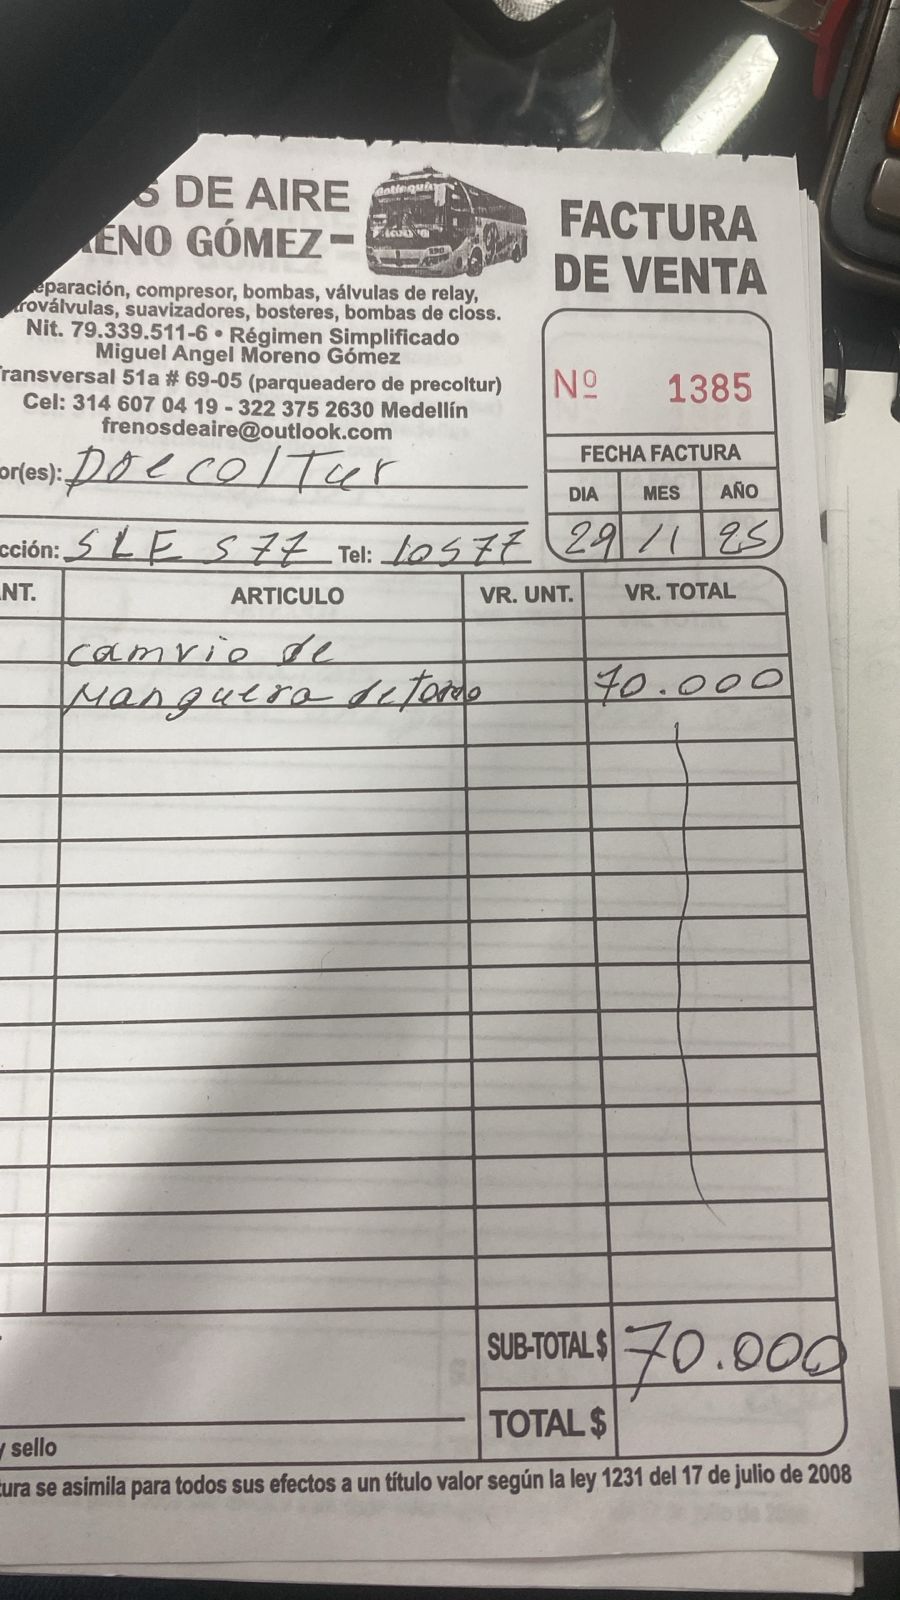 S DE AIRE
RENO GÓMEZ-
Antioquia
FACTURA
DE VENTA
eparación, compresor, bombas, válvulas de relay,
roválvulas, suavizadores, bosteres, bombas de closs.
Nit. 79.339.511-6 • Régimen Simplificado
Miguel Angel Moreno Gómez
Transversal 51a # 69-05 (parqueadero de precoltur)
Cel: 314 607 04 19 - 322 375 2630 Medellín
frenosdeaire@outlook.com
Nº 1385
FECHA FACTURA
DIA MES AÑO
29 11 25
or(es): Precoltur
cción: SLE 577 Tel: 10577
NT. ARTICULO VR. UNT. VR. TOTAL
camvio de
Manguera de 70.000
SUB-TOTAL $ 70.000
TOTAL $
y sello
tura se asimila para todos sus efectos a un título valor según la ley 1231 del 17 de julio de 2008